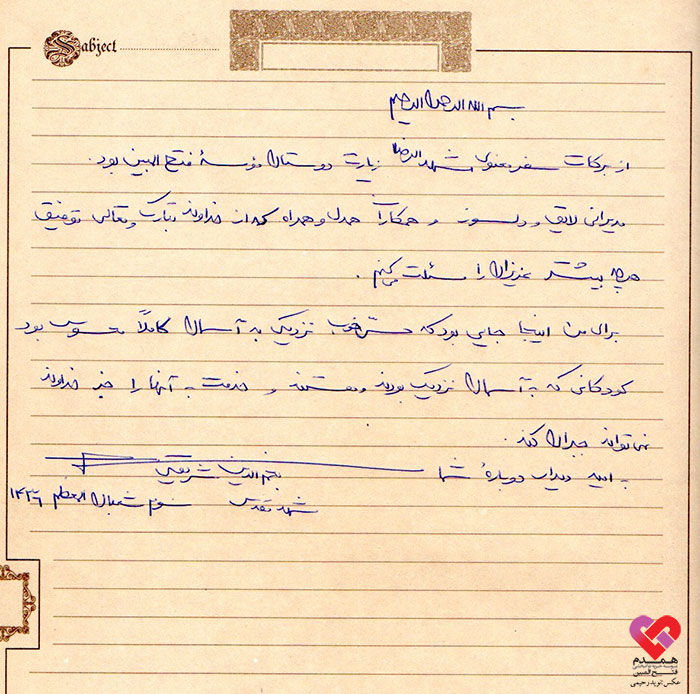 Subject
بسم الله الرحمن الرحیم
از برکات سفر معنوی مشهدالرضا زیارت دوستان مؤسسهٔ فتح المبین بود.
مدیرانی لایق و دلسوز و همکاران همدل و همراه که از خداوند تبارک و تعالی توفیق
هرچه بیشتر عزیزان را مسئلت می‌کنم.
برای من اینجا جایی بود که حسّ خوب نزدیکی به آسمان کاملاً محسوس بود
کودکانی که به آسمان نزدیک بودند و هستند و خدمت به آنها را جز خداوند
نمی‌تواند جبران کند.
به امید دیدار دوبارهٔ شما
نجم الدین شریعتی
مشهد مقدس سوم شعبان المعظم ۱۴۳۶
همدم
فتح المبین
عکس: نوید رحیمی